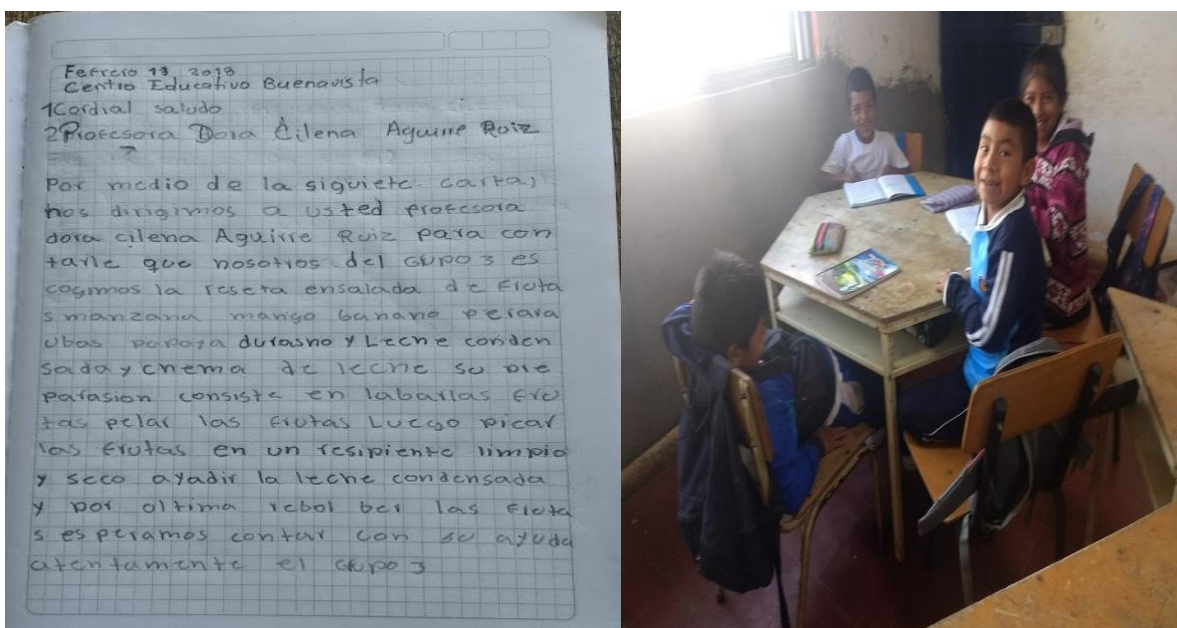 Fefrero 13 2018
Centro Educativo Buenavista
1Cordial saludo
2Profesora Dora Cilena Aguirre Ruiz
Por medio de la siguiete carta,
nos dirigimos a usted profesora
dora cilena Aguirre Ruiz para con
tarle que nosotros del Grupo 3 es
cogimos la reseta ensalada de fruta
s manzana mango banano perara
ubas papaya durasno y Leche conden
sada y chema de leche su pre
parasion consiste en labarlas fru
tas pelar las frutas Luego picar
las frutas en un resipiente limpio
y seco ayadir la leche condensada
y por oltima rebol ber las fruta
s es peramos contar con su ayuda
atentamente el Grupo 3